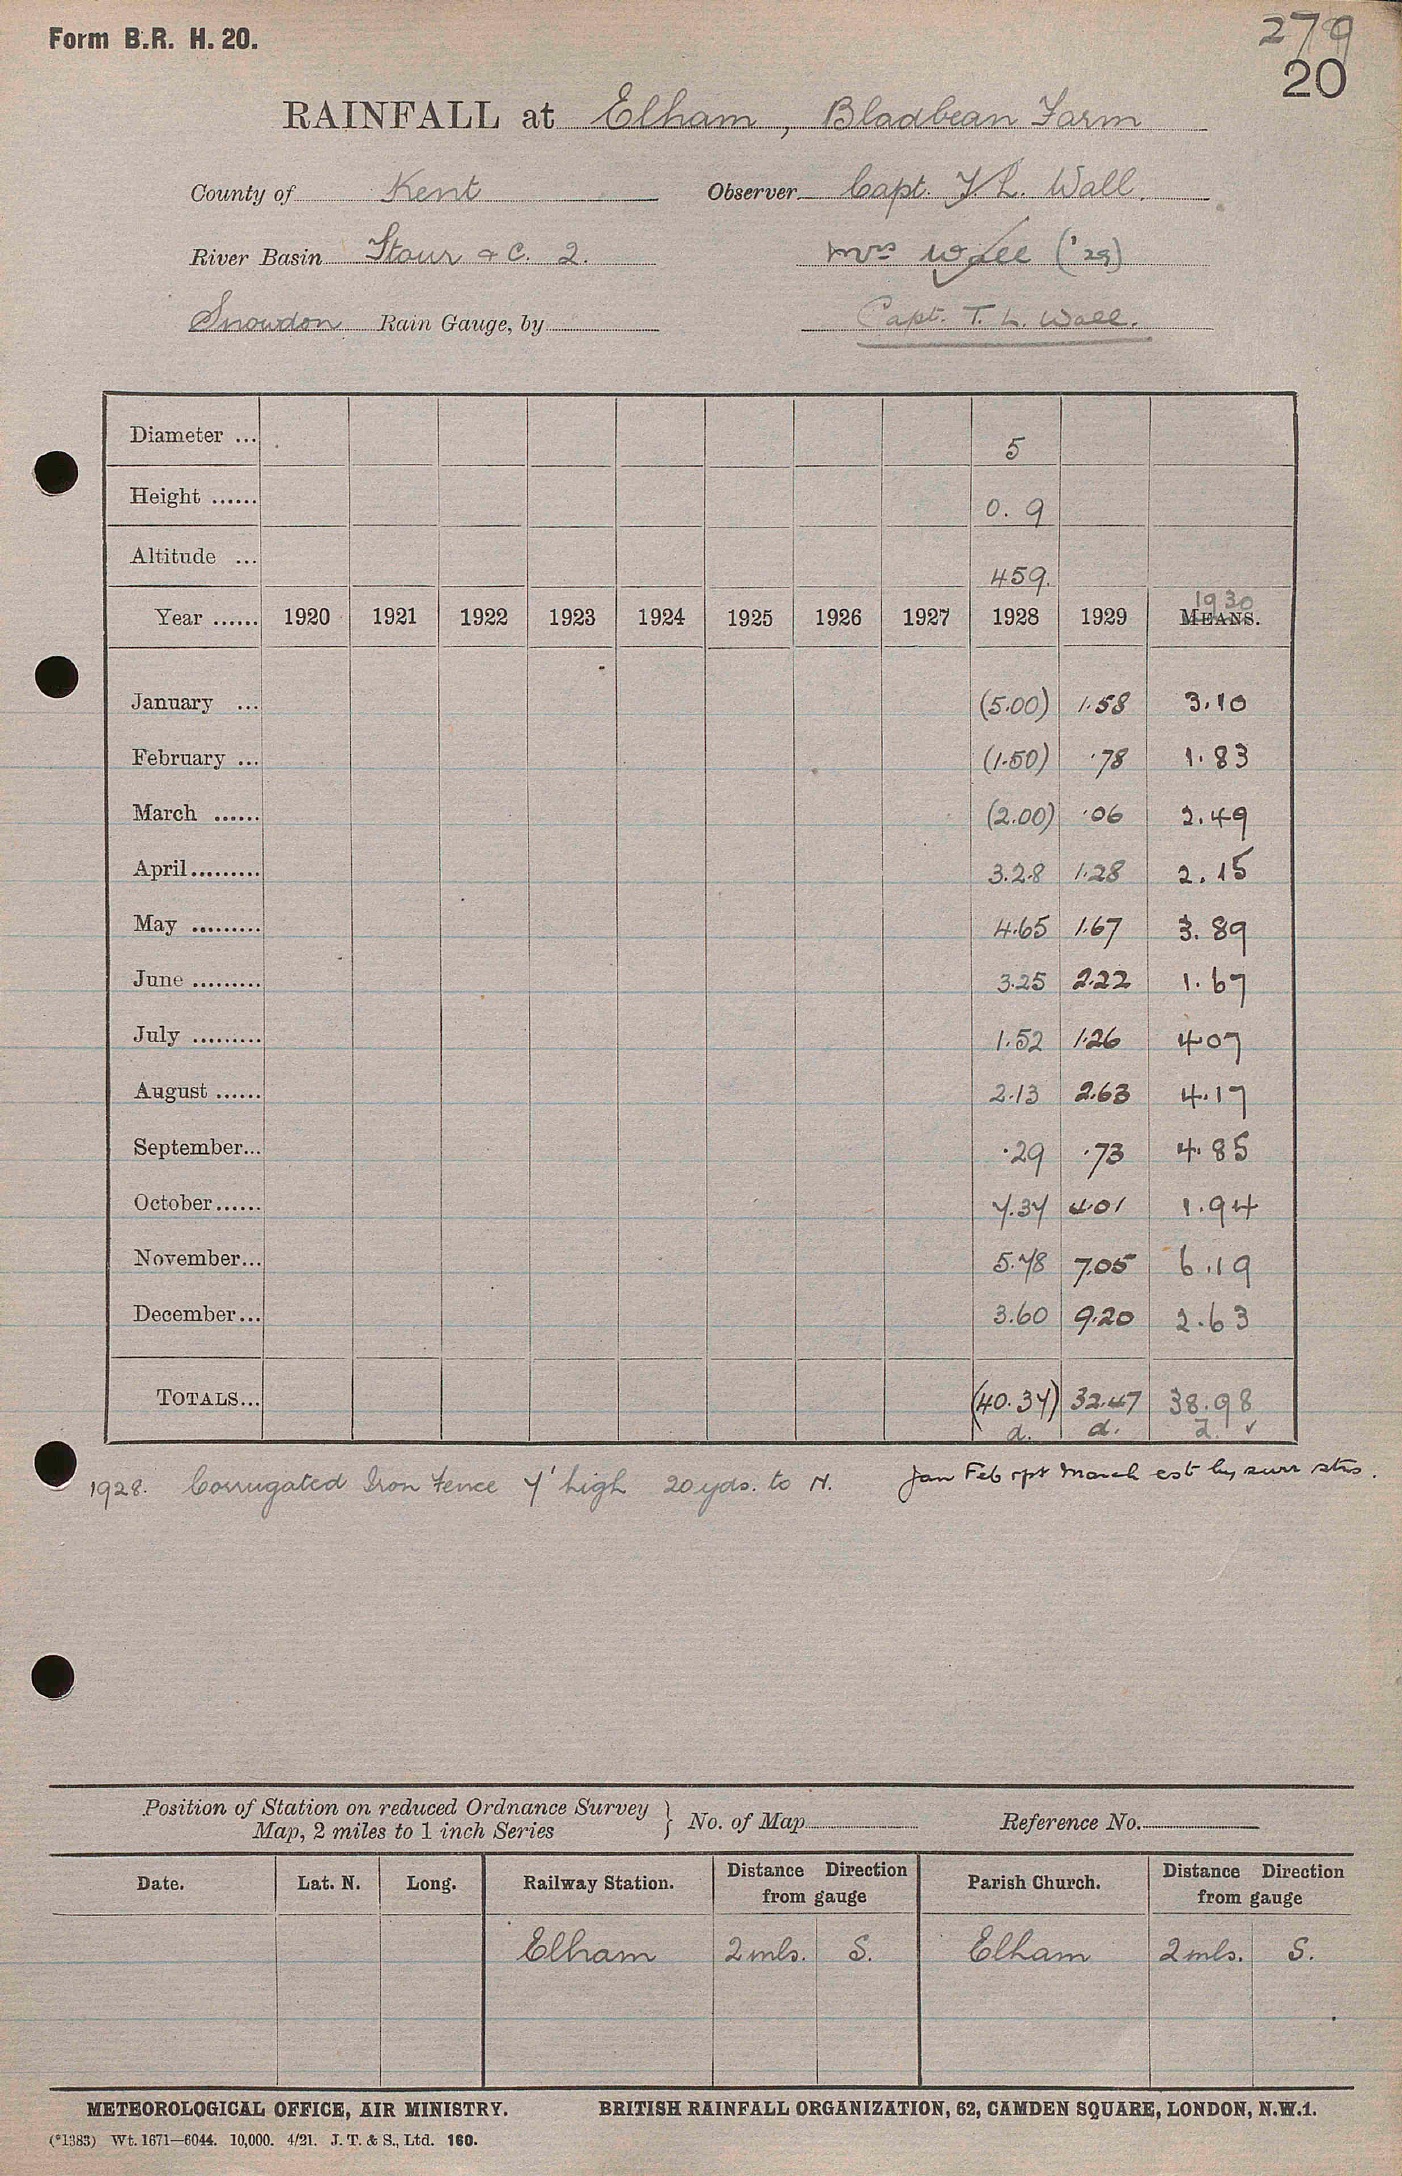 Form B.R. H. 20.
279
20
RAINFALL at Elham, Bladbean Farm
County of Kent Observer Capt. T. L. Wall.
River Basin Stour & C. 2. Mrs Wall ('29)
Snowdon Rain Gauge, by Capt. T. L. Wall.
Diameter ... 5
Height ...... 0. 9
Altitude ... 459.
1930
Year ...... 1920 1921 1922 1923 1924 1925 1926 1927 1928 1929 MEANS.
January ... (5.00) 1.58 3.10
February ... (1.50) .78 1.83
March ...... (2.00) .06 2.49
April ......... 3.28 1.28 2.15
May ......... 4.65 1.67 3.89
June ......... 3.25 2.22 1.67
July ......... 1.52 1.26 4 07
August ...... 2.13 2.63 4.17
September... .29 .73 4.85
October...... 7.37 4.01 1.94
November... 5.78 7.05 6.19
December... 3.60 9.20 2.63
TOTALS... (40.37) 32.47 38.98
d. d. d. ✓
1928. Corrugated Iron Fence 7' high 20 yds. to N. Jan Feb & pt March est by surr stns.
Position of Station on reduced Ordnance Survey
Map, 2 miles to 1 inch Series } No. of Map Reference No.
Date. Lat. N. Long. Railway Station. Distance Direction from gauge Parish Church. Distance Direction from gauge
Elham 2 mls. S. Elham 2 mls. S.
METEOROLOGICAL OFFICE, AIR MINISTRY. BRITISH RAINFALL ORGANIZATION, 62, CAMDEN SQUARE, LONDON, N.W.1.
(*1383) Wt. 1671—6044. 10,000. 4/21. J. T. & S., Ltd. 160.